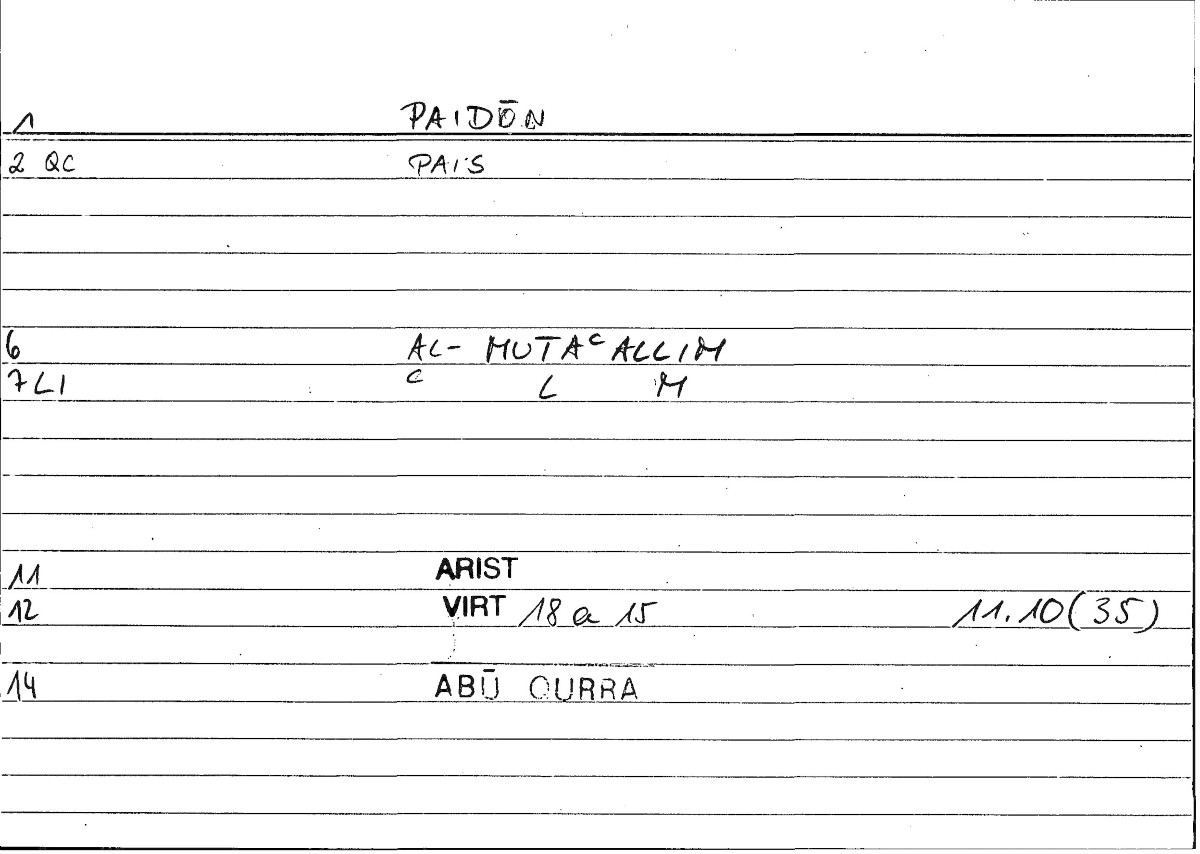 1 PAIDŌN
2 QC PAIS
6 AL- MUTAᶜALLIM
7 LI ᶜ L M
11 ARIST
12 VIRT 18 a 15 11.10(35)
14 ABŪ QURRA